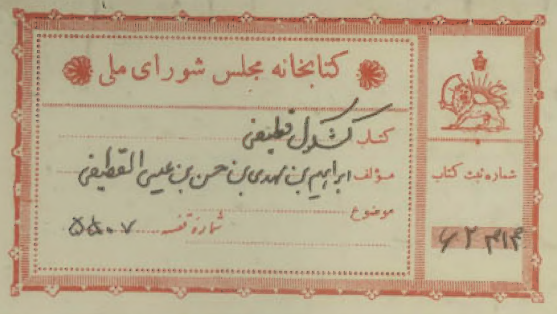 کتابخانه مجلس شورای ملی
کتاب کشکول قطیفی
مؤلف ابراهیم بن مهدی بن حسن بن عیسی القطیفی
موضوع
شماره قفسه
شماره ثبت کتاب